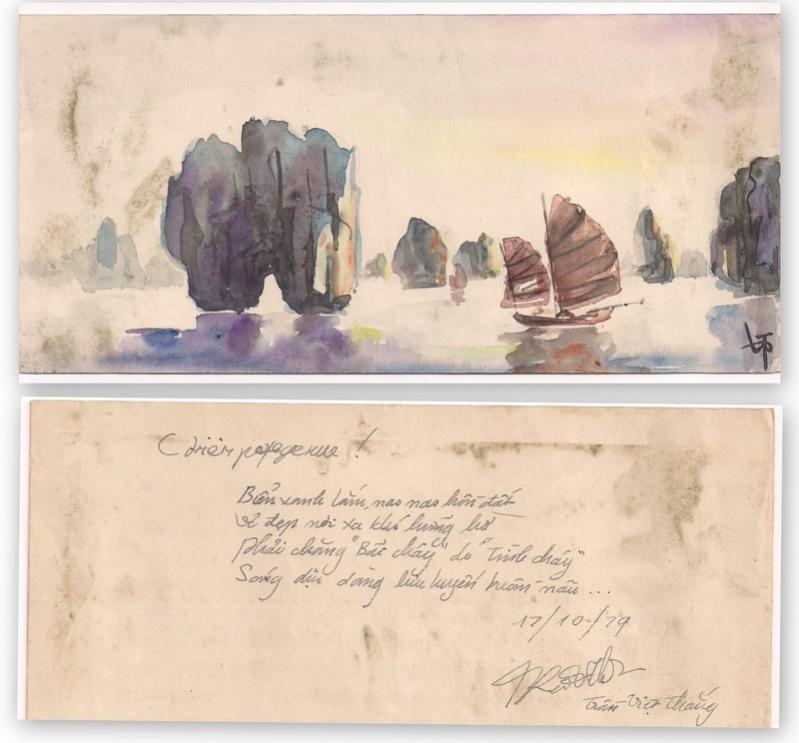 С днём рождение!
Biển xanh lắm, nao nao hồn đất
Vẻ đẹp nơi xa khó hững hờ
Phải chăng "Bãi cháy" do "Tình cháy"
Sóng dịu dàng lưu luyến buồn nâu ...
17/10/79
Trần Việt Thắng